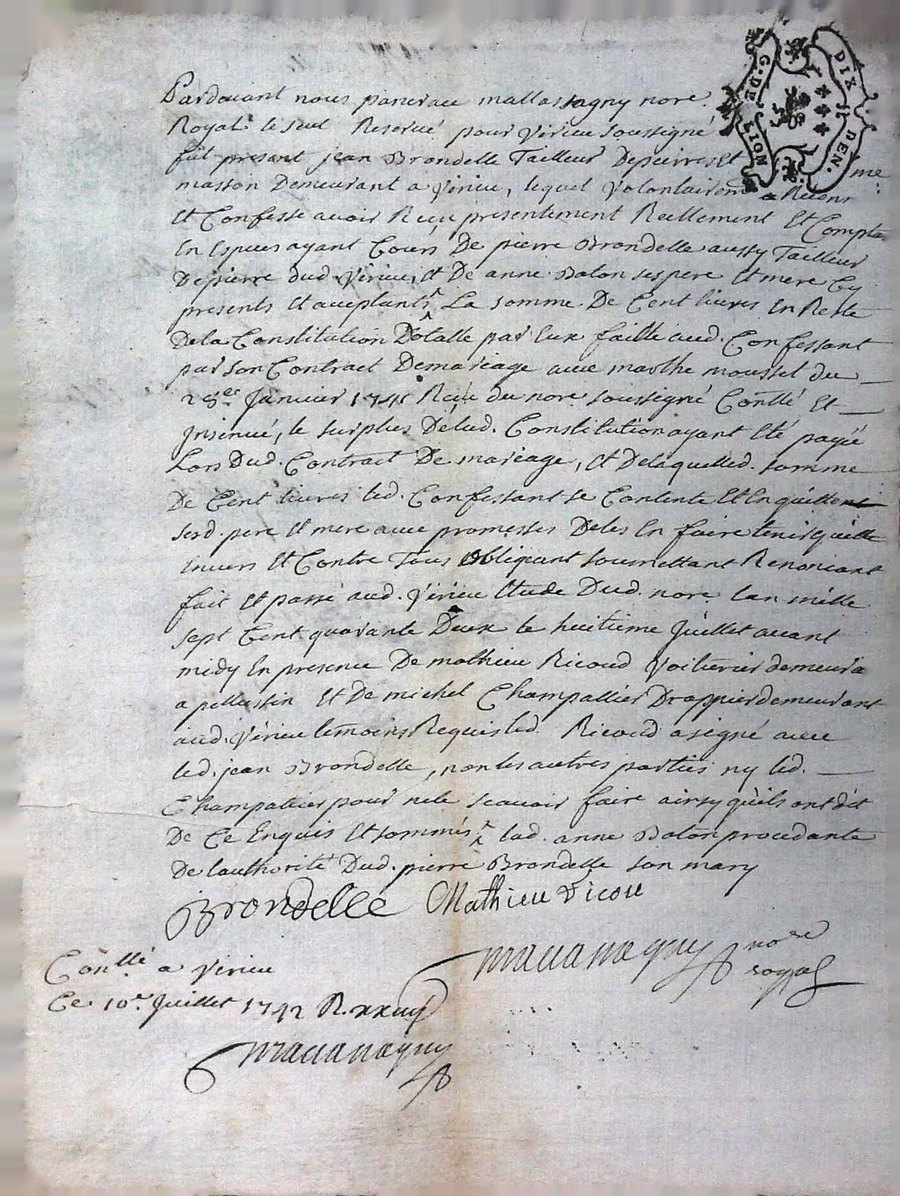 G. DE LION
DIX DEN.
Pardevant nous pancrace mallassagny nore.
Royal le seul Reservé pour Virieu soussigné
fut present jean Brondelle Tailleur Depierres et
masson Demeurant a Virieu, lequel volontairemt a
Et Confesse avoir Reçu presentement Reellement Et Compta
En Especes ayant Cours De pierre Brondelle aussy Tailleur
Depierre dud. Virieu, et De anne Balon ses pere et mere Cy
presents Et acceptants La somme De Cent livres En Reste
Dela Constitution Dotalle par Eux faitte aud. Confessant
par son Contract Demariage avec marthe moussel du
28e. Janvier 1741 Reçu du nore soussigné Conllé Et
Insinué, le surplus De lad. Constitution ayant Eté payé
Lors Dud. Contract De mariage, Et Delaquelle d. somme
De Cent livres led. Confessant se Contente Et En quitte
sesd. pere Et mere avec promesses Deles En faire tenir quitte
Envers Et Contre Tous obligeant soumettant Renonceant
fait Et passé aud. Virieu Etude Dud. nore Lan mille
sept Cent quarante Deux le huitieme Juillet avant
midy En presence De mathieu Ricoud Voiturier demeura
a pellussin Et De michel Champallier Drappier demeurant
aud. Virieu temoins Requis led. Ricoud a signé avec
led. jean Brondelle, non les autres parties ny led.
Champallier pour ne le scavoir faire ainsy quils ont dit
De Ce Enquis Et sommés lad. anne Balon procedante
De lauthorité Dud. pierre Brondelle son mary
Brondelle Mathieu Vicou
nore
royal
Conllé a Virieu
Ce 10e. Juillet 1742 R.